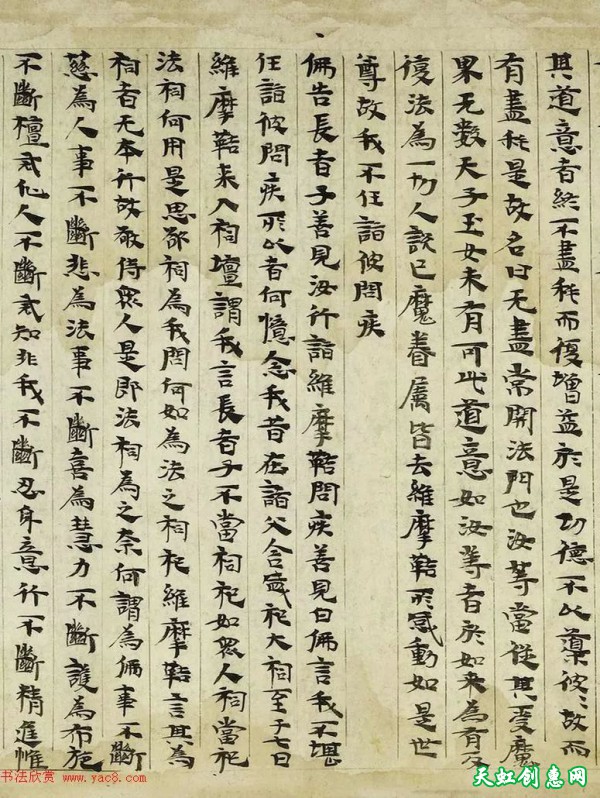 其道意者終不盡秏而復增益於是功德不以導彼彼故而
有盡秏是故名曰无盡常開法門也汝等當從其受魔
界无數天子玉女未有可此道意如汝等者於如來為有
復法為一切人說已魔眷屬皆去維摩鞊所感動如是世
尊故我不任詣彼問疾
佛告長者子善見汝行詣維摩鞊問疾善見白佛言我不堪
任詣彼問疾所以者何憶念我昔在諸父舍盛祀大祠至于七日
維摩鞊來入祠壇謂我言長者子不當祠祀如眾人祠當祀
法祠何用是思欲祠為我問何如為法之祠祀維摩鞊言其為
祠者无本行故敬侍眾人是即法祠為之奈何謂為佛事不斷
慈為人事不斷悲為法事不斷喜為慧力不斷護為布施
不斷檀戒化人不斷戒知非我不斷忍身意行不斷精進惟
书法欣赏 www.yac8.com
天虹创惠网